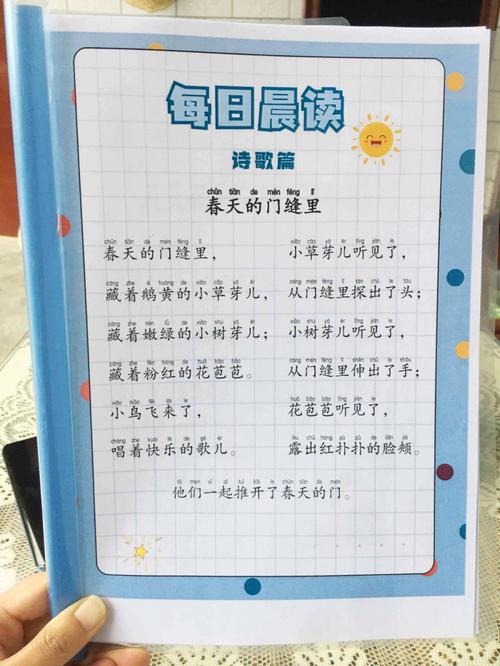 每日晨读
诗歌篇
chūn tiān de mén fèng lǐ
春天的门缝里
chūn tiān de mén fèng lǐ
春天的门缝里，
cáng zhe é huáng de xiǎo cǎo yá ér
藏着鹅黄的小草芽儿，
cáng zhe nèn lǜ de xiǎo shù yá ér
藏着嫩绿的小树芽儿；
cáng zhe fěn hóng de huā bāo bāo
藏着粉红的花苞苞。
xiǎo niǎo fēi lái le
小鸟飞来了，
chàng zhe kuài lè de gē ér
唱着快乐的歌儿。
xiǎo cǎo yá ér tīng jiàn le
小草芽儿听见了，
cóng mén fèng lǐ tàn chū le tóu
从门缝里探出了头；
xiǎo shù yá ér tīng jiàn le
小树芽儿听见了，
cóng mén fèng lǐ shēn chū le shǒu
从门缝里伸出了手；
huā bāo bāo tīng jiàn le
花苞苞听见了，
lòu chū hóng pū pū de liǎn jiá
露出红扑扑的脸颊。
tā men yì qǐ tuī kāi le chūn tiān de mén
他们一起推开了春天的门。